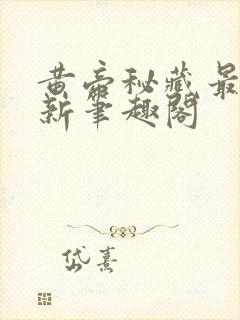 黄帝秘藏最
新笔趣阁
岱熹